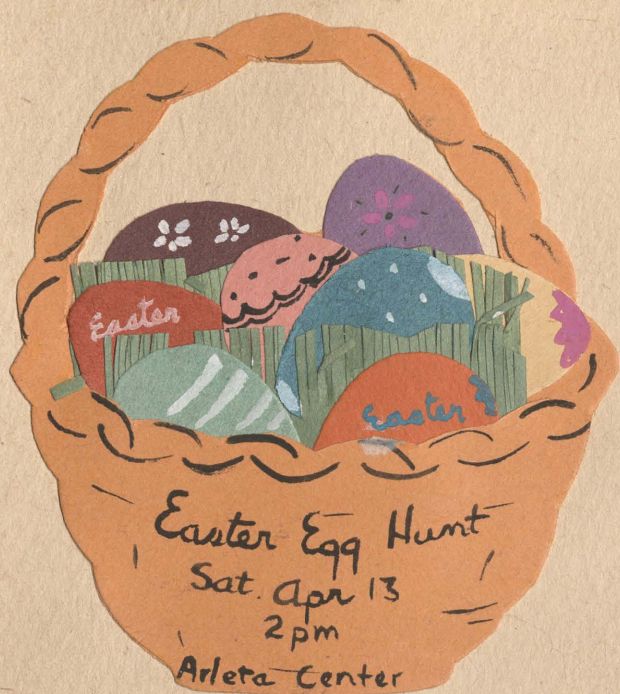 Easter
Easter
Easter Egg Hunt
Sat. Apr 13
2pm
Arleta Center